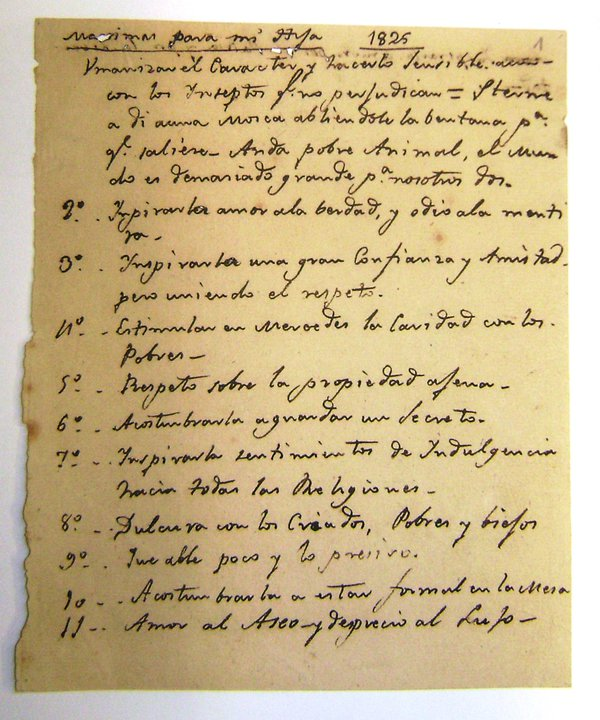 Maximas para mi Hija 1825
1
Vmanizar el Caracter y hacerlo sensible aun
con los Inseptos qe. no perjudican = Sterne
a di auna Mosca abriendole la bentana pa.
qe. saliese - Anda pobre Animal, el Mun-
do es demaciado grande pa. nosotros dos.
2º. - Inpirarla amor ala berdad, y odio ala menti
ra -
3º. - Inspirarla una gran Confianza y Amistad
pero uniendo el respeto.
4º. - Estimular en Mercedes la Caridad con los
Pobres -
5º. - Respeto sobre la propiedad ajena -
6º. - Acostumbrarla aguardar un Secreto.
7º. - Inspirarla sentimientos de Indulgencia
hacia todas las Religiones -
8º. - Dulcura con los Criados, Pobres y biejos
9º. - Que able poco y lo presiso.
10 - Acostumbrarla a estar formal en la Mesa
11 - Amor al Aseo y desprecio al Lujo -